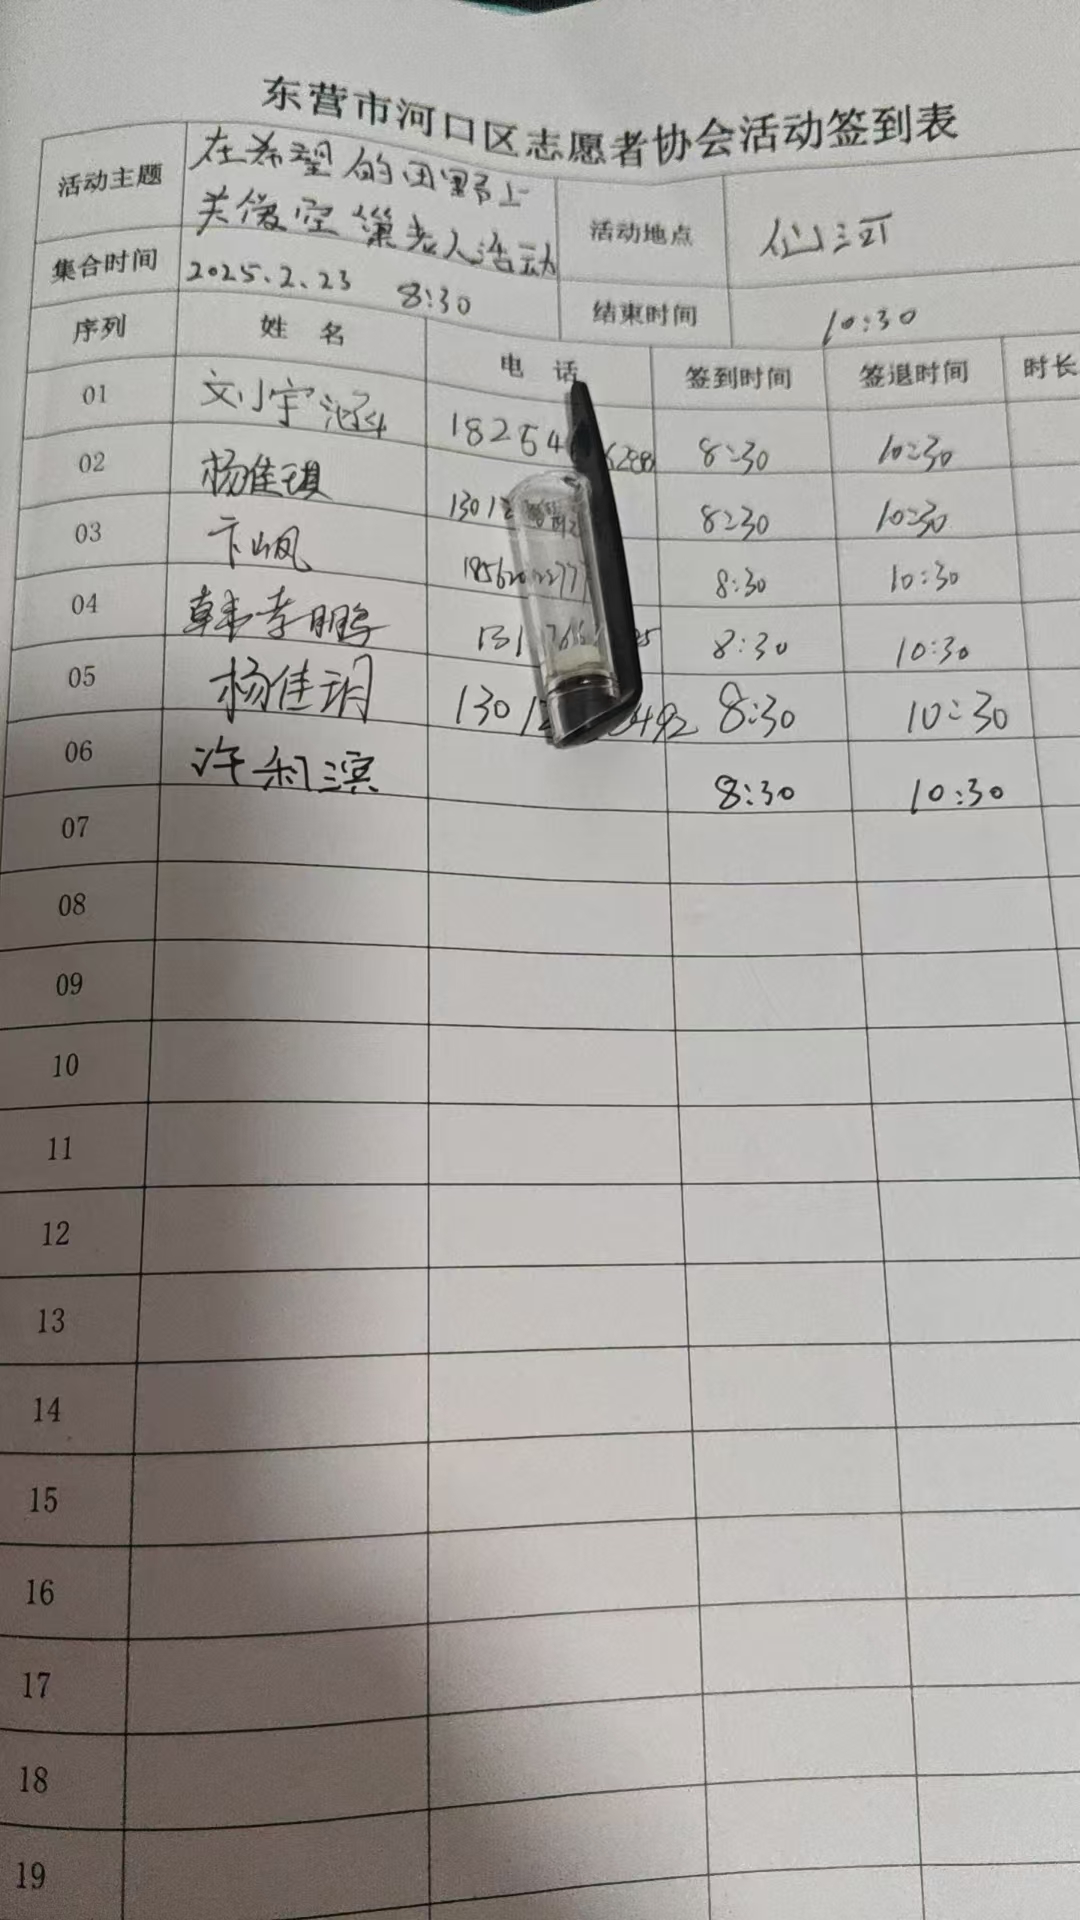 东营市河口区志愿者协会活动签到表
活动主题 在希望的田野上
关爱空巢老人活动 活动地点 仙河
集合时间 2025.2.23 8:30 结束时间 10:30
序列 姓名 电话 签到时间 签退时间 时长
01 8:30 10:30
02 杨佳琪 8:30 10:30
03 8:30 10:30
04 韩孝鹏 8:30 10:30
05 杨佳玥 8:30 10:30
06 许利滨 8:30 10:30
07
08
09
10
11
12
13
14
15
16
17
18
19